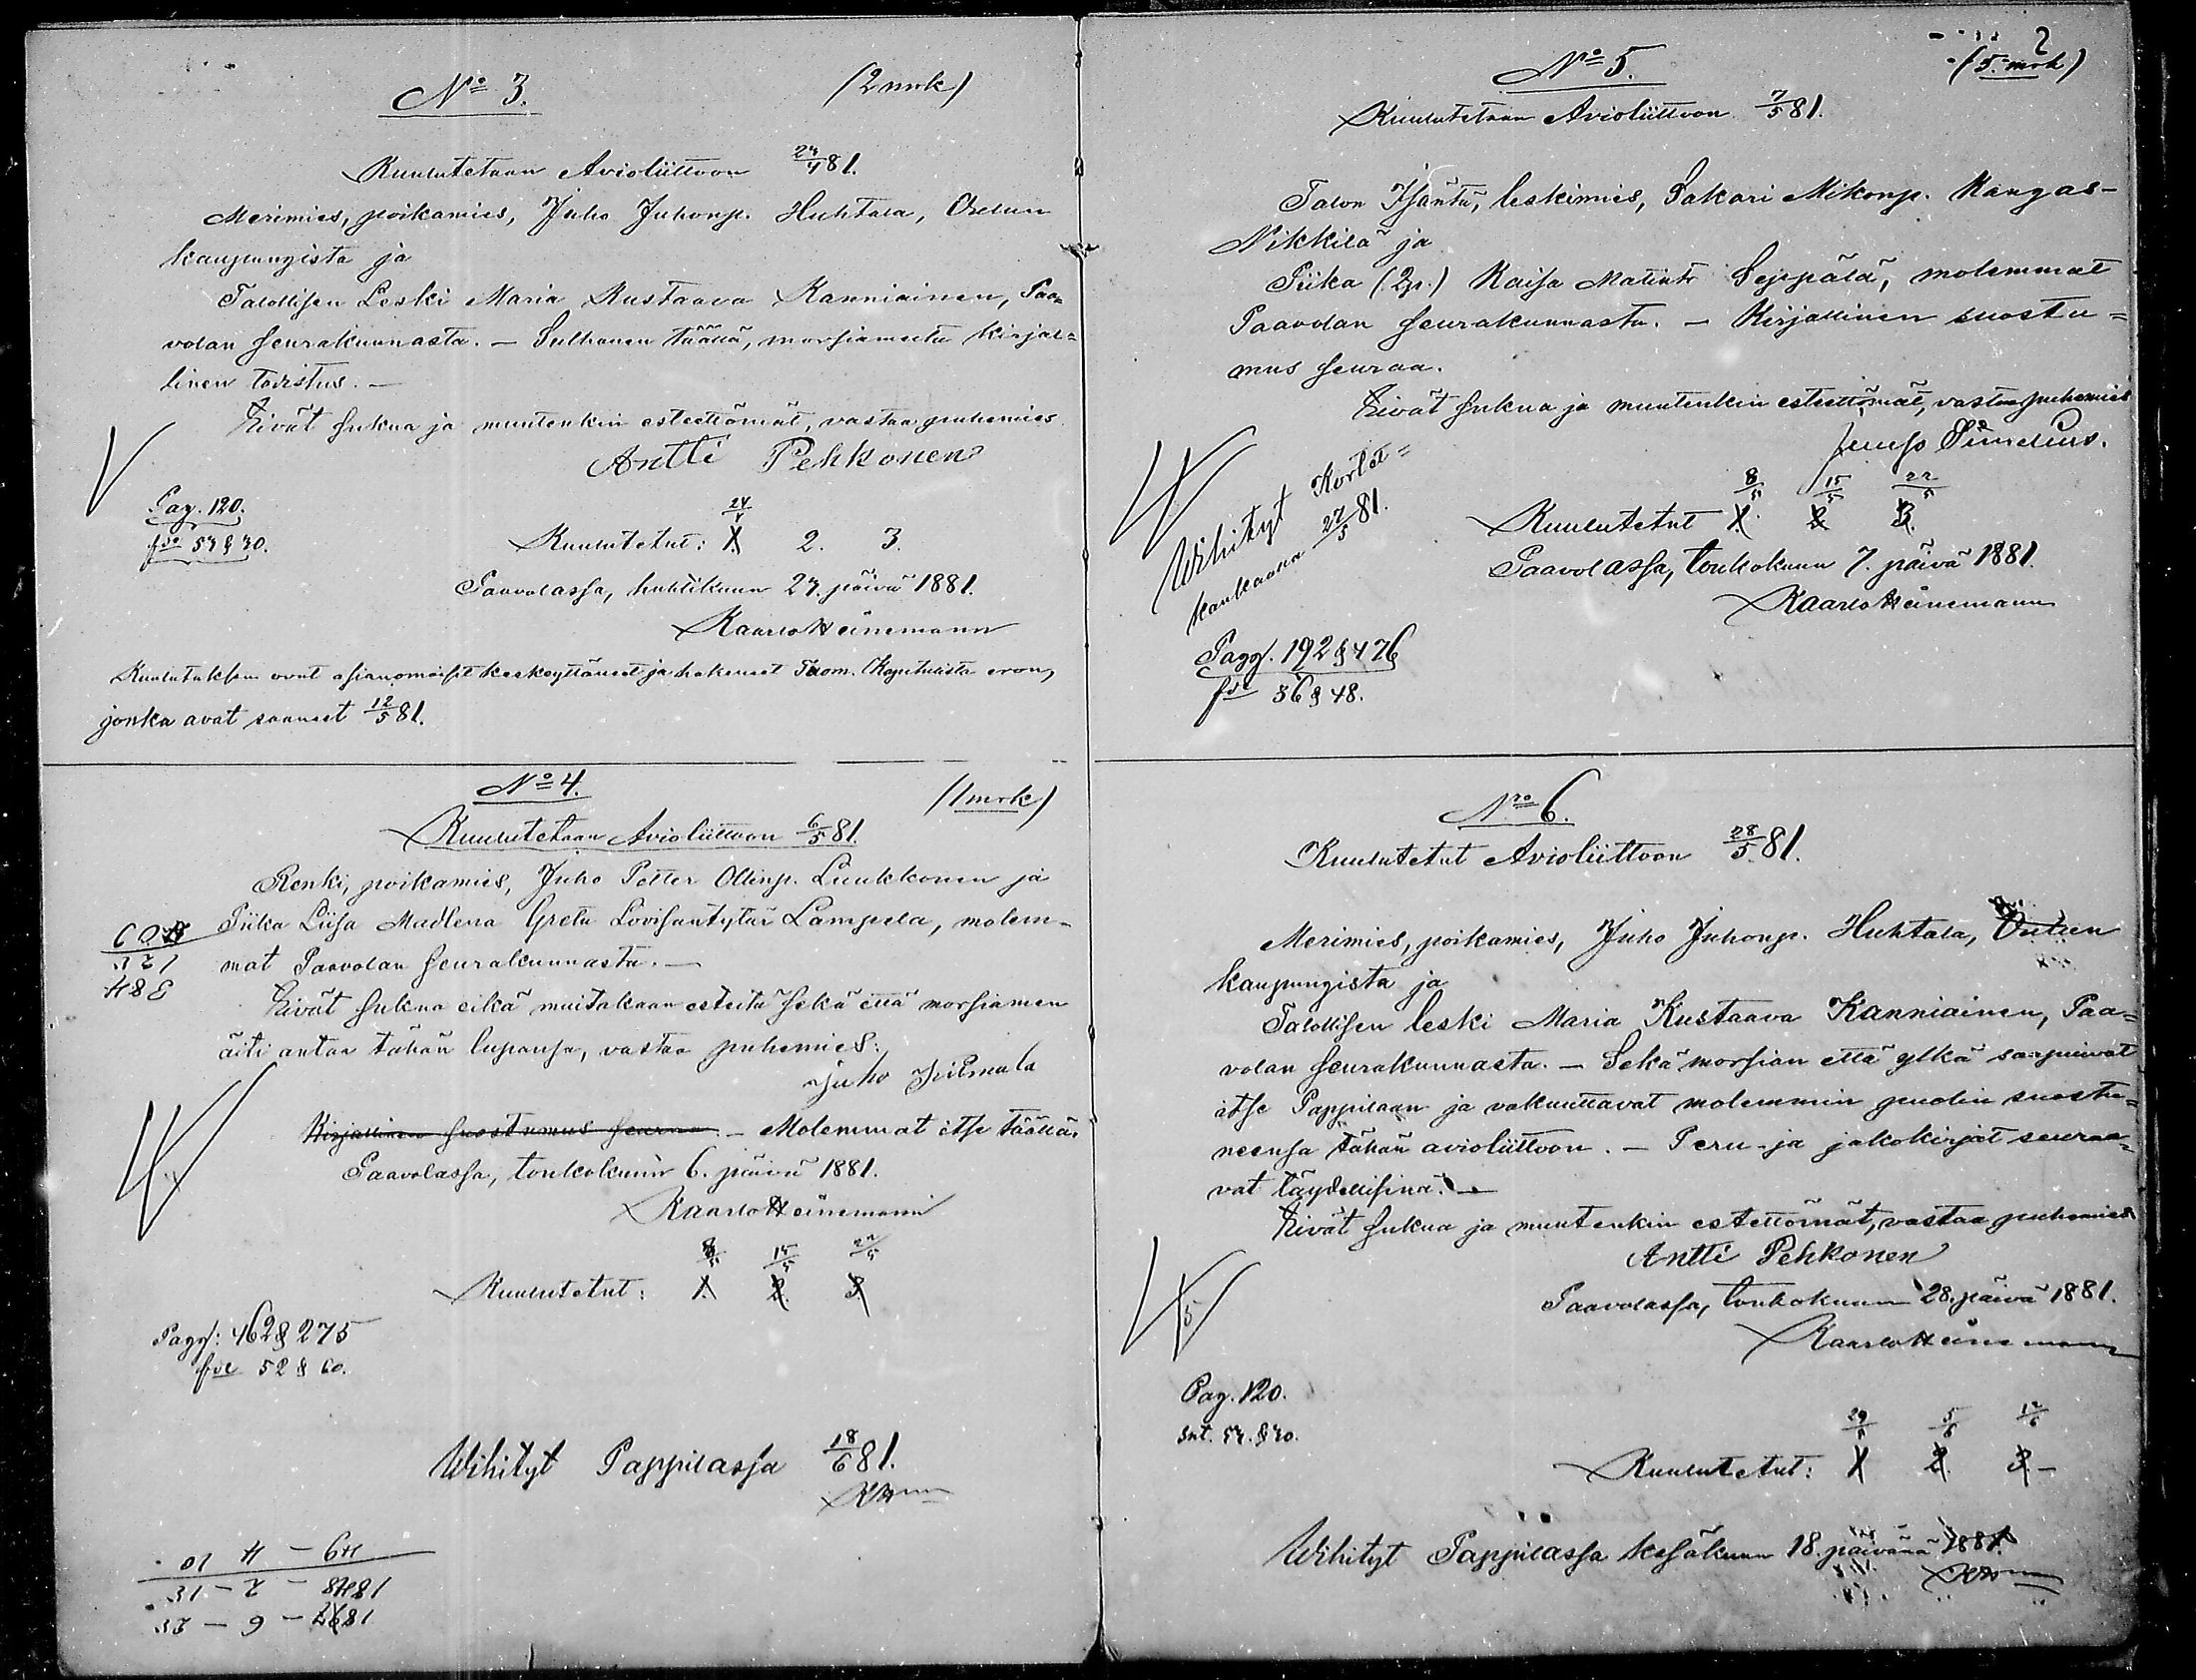 No 3. (2 mrk)
Kuulutetaan Avioliittoon 24/4 81.
Merimies, poikamies, Juho Juhonp. Huhtala, Oulun
kaupungista ja
Talollisen Leski Maria Kustaava Kanniainen, Paa=
volan seurakunnasta. — Sulhanen täällä, morsiamelta kirjal=
linen todistus. —
Eivät sukua ja muutenkin esteettömät, vastaa puhemies
Antti Pehkonen
Pag. 120.
24/4
Kuulutetut: 1. 2. 3.
Paavolassa, huhtikuun 24. päivä 1881.
Kaarlo Heinemann
Kuulutuksen ovat asianomaiset keskeyttäneet ja hakeneet Tuom. Kapitulista eron,
jonka ovat saaneet 12/5 81.
No 4. (1 mrk)
Kuulutetaan Avioliittoon 6/5 81.
Renki, poikamies, Juho Petter Ollinp. Luukkonen ja
Piika Liisa Madlena Greta Lovisantytär Lampela, molem-
mat Paavolan seurakunnasta. —
Eivät sukua eikä muitakaan esteitä sekä että morsiamen
äiti antaa tähän lupansa, vastaa puhemies:
Juho
Kirjallinen suostumus seuraa. — Molemmat itse täällä.
Paavolassa, toukokuun 6. päivä 1881.
Kaarlo Heinemann
8/5 15/5 22/5
Kuulutetut: 1. 2. 3.
Pagg: 462 & 275
fol 52 & 60.
Wihityt Pappilassa 18/6 81.
KHmn
No 5. 2
(5. mrk)
Kuulutetaan Avioliittoon 7/5 81.
Talon Isäntä, leskimies, Sakari Mikonp. Kangas-
Nikkilä ja
Piika (2p.) Kaisa Matintr Seppälä, molemmat
Paavolan seurakunnasta. — Kirjallinen suostu=
mus seuraa.
Eivät sukua ja muutenkin esteettömät, vastaa puhemies
8/5 15/5 22/5
Kuulutetut 1. 2. 3.
Wihityt Kortet=
kankaana 27/5 81.
Paavolassa, toukokuun 7. päivä 1881.
Kaarlo Heinemann
Pagg. 192 & 476
fol 36 & 48.
Nro 6.
Kuulutetut Avioliittoon 28/5 81.
Merimies, poikamies, Juho Juhonp. Huhtala, Oulun
kaupungista ja
Talollisen leski Maria Kustaava Kanniainen, Paa=
volan seurakunnasta. — Sekä morsian että ylkä saapuivat
itse Pappilaan ja vakuuttavat molemmin puolin suostu=
neensa tähän avioliittoon. — Peru- ja jakokirjat seuraa=
vat täydellisinä. —
Eivät sukua ja muutenkin esteettömät, vastaa puhemies
Antti Pehkonen
Paavolassa, toukokuun 28. päivä 1881.
Kaarlo Heinemann
Pag. 120.
29/5 5/6 12/6
Kuulutetut: 1 2. 3 —
Wihityt Pappilassa kesäkuun 18. päivänä 1881.
KHmn